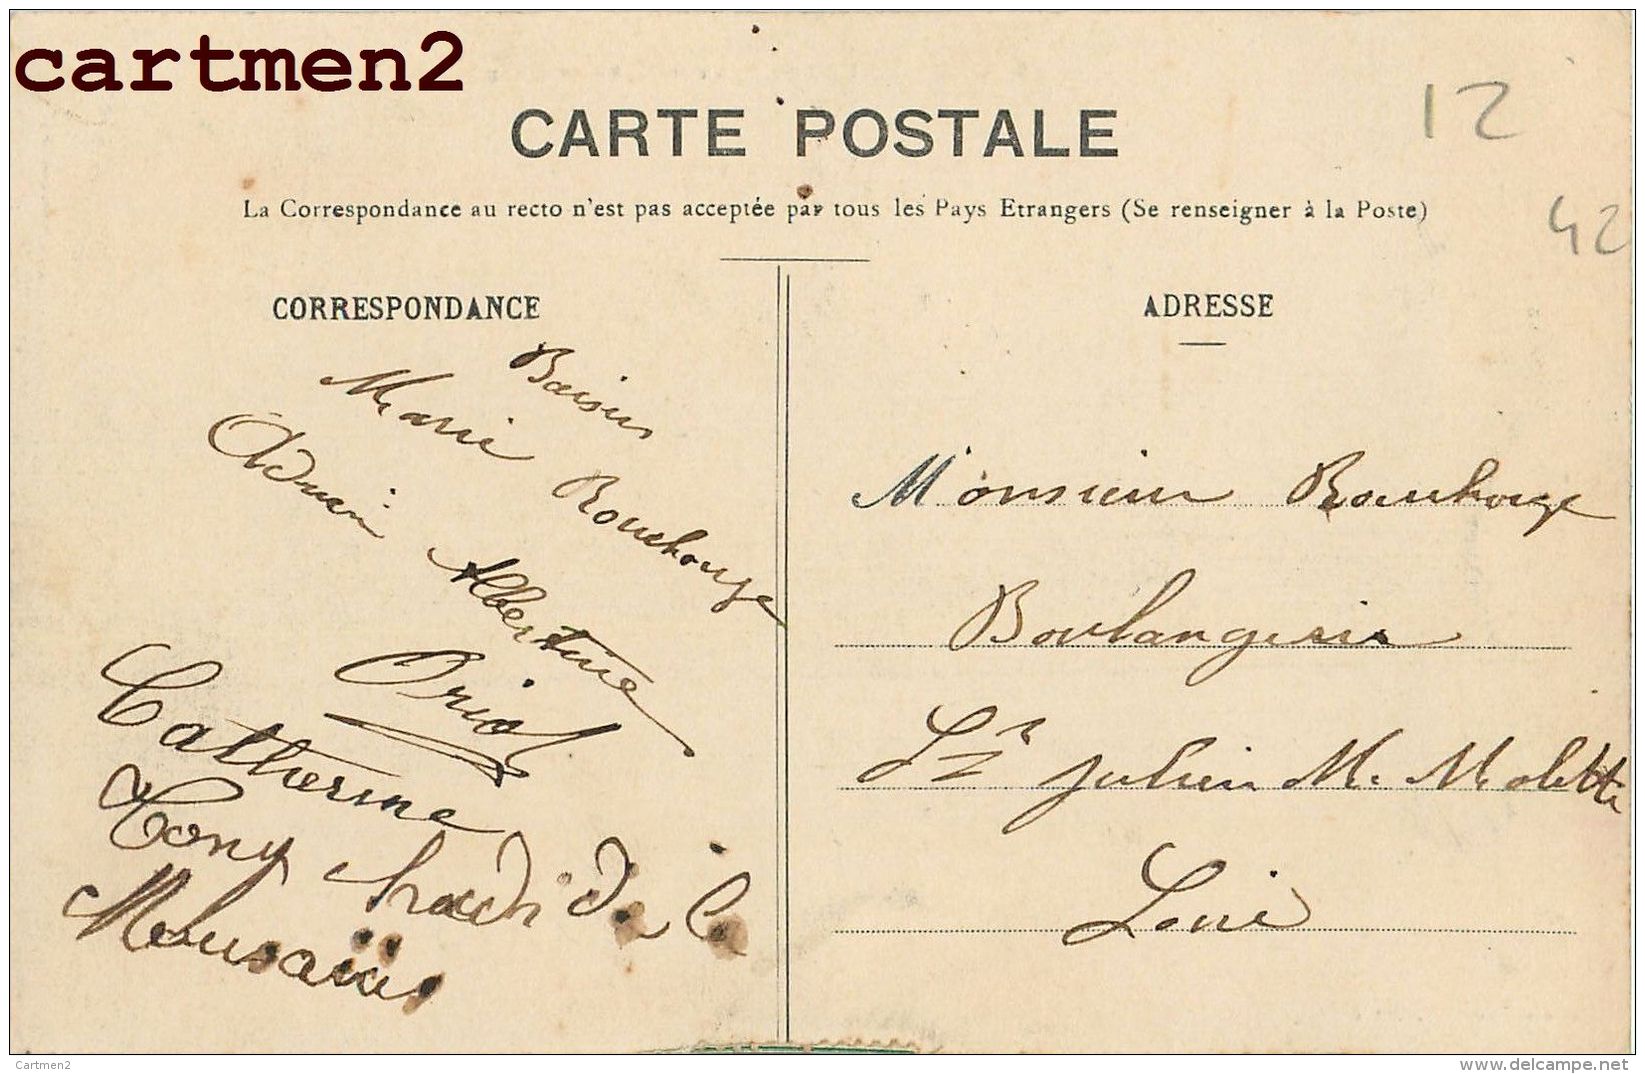 cartmen2
CARTE POSTALE
12
La Correspondance au recto n'est pas acceptée par tous les Pays Etrangers (Se renseigner à la Poste)
42
CORRESPONDANCE
Baisers
Marie Rouchouze
Albertine
Oriol
Catherine
Tony
ADRESSE
Monsieur Rouchouze
Boulangerie
St Julien M. Molette
Loire
Cartmen2
http://www.delcampe.net